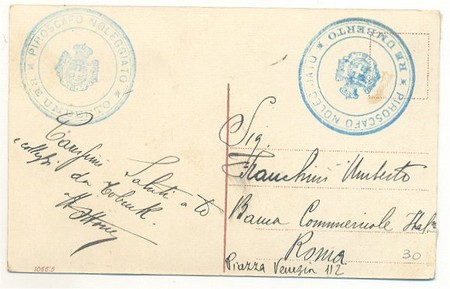 ★ PIROSCAFO NOLEGGIATO ★
RE UMBERTO
★ PIROSCAFO NOLEGGIATO ★
RE UMBERTO
Saluti a te
e colleghi
da Tobruk
Sig.
Franchini Umberto
Banca Commerciale Ital.
Roma
Piazza Venezia 112
30